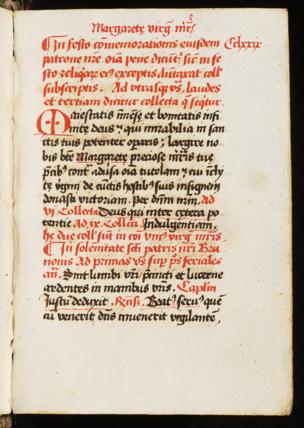 Margarete virg mris
In festo comemorationis eiusdem Cclxxix
patrone nre. oia pene dicunt sic in fe
sto reliqar ei exceptis duntaxat coll
subscriptis. Ad vtrasqs vs, laudes
et tertiam dicitur collecta q seqtur.
Maiestatis imese et bonitatis infi
nite deus qui mirabilia in san
ctis tuis potenter opar; largire no
bis bte Margarete preciose mris tue
pcib cont adusa oia tutelam ; cu icly
te vgini de cuctis hostib suis insignem
donasti victoriam. Per dnm nrm. Ad
vi Collecta Deus qui inter cetera po
tentie Ad ix Collcta. Indulgentiam.
he due coll sut in coi vnius virg mris
In solemnitate scti patris nri Bru
nonis Ad primas vs sup ps feriales
an. Sint lumbi vri pcincti et lucerne
ardentes in manibus vris. Caplm
Justu deduxit. Rnsu. Beat seru que
cu venerit dns inuenerit vigilante.